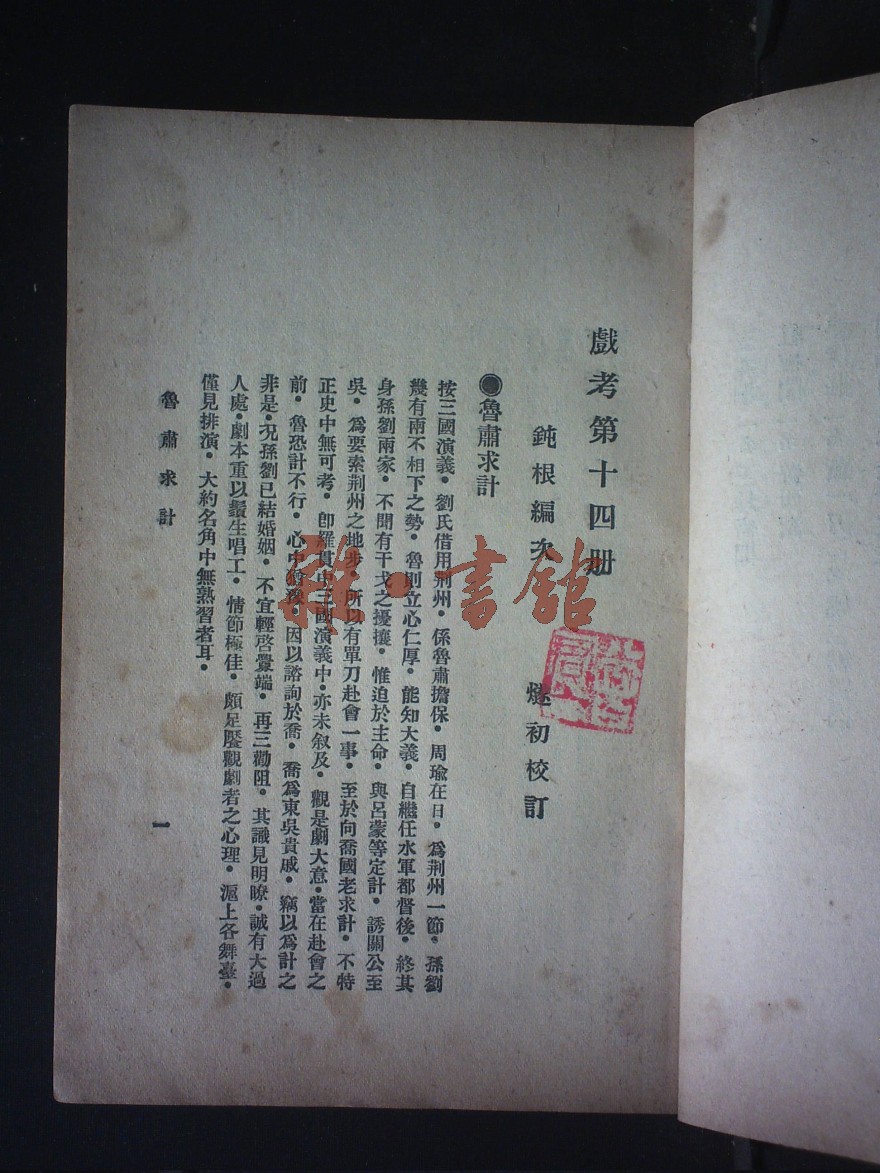 戲考第十四册
鈍根編次
燧初校訂
●魯肅求計
按三國演義。劉氏借用荆州。係魯肅擔保。周瑜在日。爲荆州一節。孫劉
幾有兩不相下之勢。魯則立心仁厚。能知大義。自繼任水軍都督後。終其
身孫劉兩家。不聞有干戈之擾攘。惟迫於主命。與呂蒙等定計。誘關公至
吳。爲要索荆州之地步。所以有單刀赴會一事。至於向喬國老求計。不特
正史中無可考。卽羅貫中三國演義中。亦未叙及。觀是劇大意。當在赴會之
前。魯恐計不行。心中猶豫。因以諮詢於喬。喬爲東吳貴戚。竊以爲計之
非是。况孫劉已結婚姻。不宜輕啓釁端。再三勸阻。其識見明瞭。誠有大過
人處。劇本重以鬚生唱工。情節極佳。頗足饜觀劇者之心理。滬上各舞臺。
僅見排演。大約名角中無熟習者耳。
魯肅求計
一
雜·書館